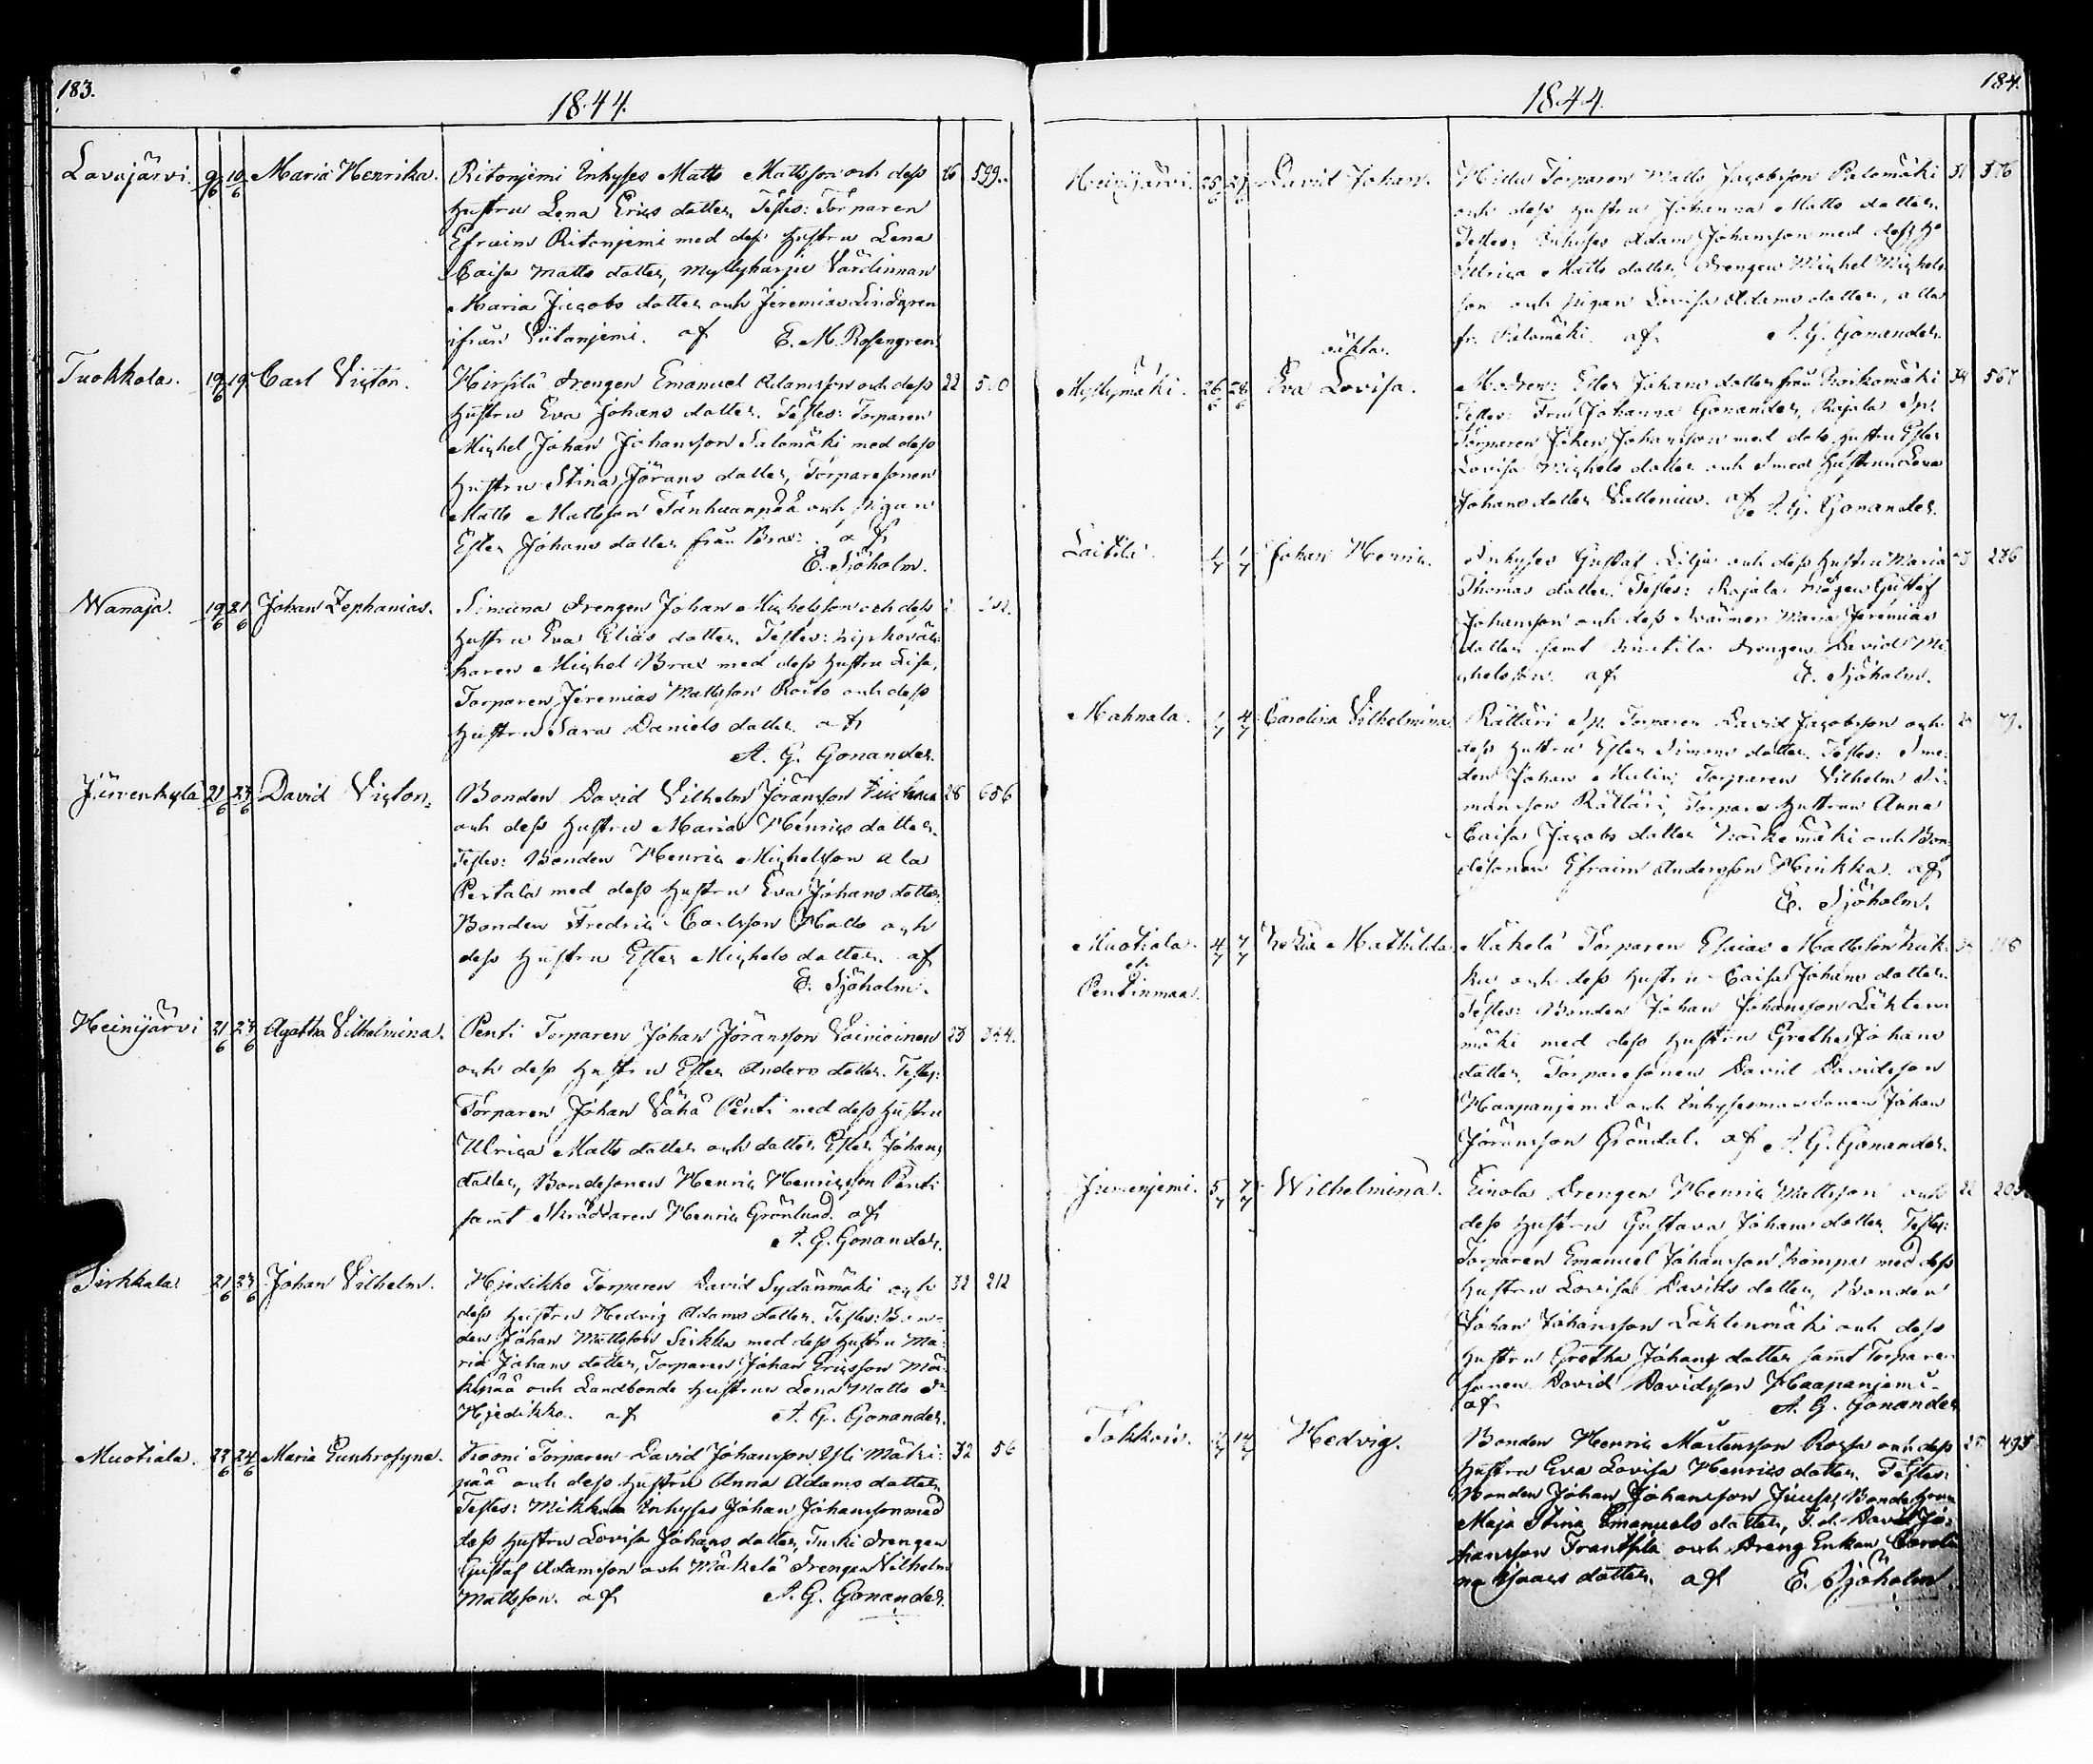 183.
1844.
Lavajärvi. 9/6 10/6 Maria Henrika. Ritonjemi Inhyses Matts Mattsson och dess 26 599.
hustru Lena Erics dotter. Testes: Torparen
Efraim Ritonjemi med dess hustru Lena
Caisa Matts dotter, Myllyharju Värdinnan
Maria Jacobs dotter och Jeremias Lindgren
ifrån Viitanjemi. af E. M. Rosengren.
Tuokkola. 19/6 19 Carl Victor. Hirsilä drengen Emanuel Adamsson och dess 22
hustru Eva Johans dotter. Testes: Torparen
Michel Johan Johansson Salomäki med dess
hustru Stina Jörans dotter, Torparesonen
Matts Mattsson Tanhuanpää och pigan
Ester Johans dotter från Brax. af
E. Sjöholm.
Wanaja. 19/6 21/6 Johan Zephanias. Simuna drengen Johan Michelsson och dess
hustru Eva Elias dotter. Testes:
karen Michel Brax med dess hustru Lisa,
Torparen Jeremias Mattsson Roito och dess
hustru Sara Daniels dotter. af
A. G. Gonander.
Järvenkylä 21/6 23/6 David Victor. Bonden David Vilhelm Jöransson 28 656
och dess hustru Maria Henrics dotter.
Testes: Bonden Henric Michelsson Ala
Pertala med dess hustru Eva Johans dotter,
Bonden Fredric Carlsson Matts och
dess hustru Ester Michels dotter. af
E. Sjöholm.
Heinijärvi 21/6 23/6 Agatha Vilhelmina. Penti Torparen Johan Jöransson Voivioinen 23 344.
och dess hustru Ester Anders dotter. Testes:
Torparen Johan Vähä Penti med dess hustru
Ulrica Matts dotter och dotter Ester Johans
dotter, Bondesonen Henric Henricsson Penti
samt Skräddaren Henric Grönlund. af
A. G. Gonander.
Sirkkala. 21/6 23/6 Johan Vilhelm. Hjedikko Torparen David Sydänmäki och 32 212
dess hustru Hedvig Adams dotter. Testes: Bon-
den Johan Mattsson Sirkka med dess hustru Ma-
ria Johans dotter, Torparen Johan Ericsson Mä-
kipää och Landbonde hustrun Lena Matts Dr
Hjedikko. af A. G. Gonander.
Muotiala. 22/6 24/6 Maria Euphrosyne. Krooni Torparen David Johansson Yli Mäki- 32 56
pää och dess hustru Anna Adams dotter.
Testes: Mikkola Inhyses Johan Johansson med
dess hustru Lovisa Johans dotter, Tuski drengen
Gustaf Adamsson och Mäkelä drengen Vilhelm
Mattsson. af A. G. Gonander.
184.
1844
Heinijärvi. 25/6 27/6 David Johan. Torparen Matts Jacobsson Palomäki 31 376
och dess hustru Johanna Matts dotter.
Testes: Inhyses Adam Johansson med dess hu
Ulrica Matts dotter, drengen Michel Michels
son och pigan Lovisa Adams dotter, alla
fr. Palomäki. af A. G. Gonander.
oäkta.
Myllymäki. 26/6 28/6 Eva Lovisa. Modren: Ester Johans dotter från Koikomäki 34 567
Testes: Fru Johanna Gonander, Rajala Sp.
Torparen Johan Johansson med dess hustru Ester
Lovisa Michels dotter och Smed hustrun Lena
Johans dotter Vallenius. af A. G. Gonander.
Laitila. 1/7 1/7 Johan Henric. Inhyses Gustaf Lilja och dess hustru Maria 286
Thomas dotter. Testes: Rajala mågen Gustaf
Johansson och dess Maria Jeremias
dotter samt Knutila drengen David Mi
chelsson. af E. Sjöholm.
Mahnala. 1/7 4/7 Carolina Vilhelmina Rättäri Sp. Torparen David Jacobsson och
dess hustru Ester Simons dotter. Testes: Sme-
den Johan Malin, Torparen Vilhelm Si-
monsson Rättäri, Torpare hustrun Anna
Caisa Jacobs dotter Koikemäki och Bon-
desonen Efraim Andersson Heikka. af
E. Sjöholm.
Muotiala 4/7 7/7 Mathilda Mäkelä Torparen Esaias Mattsson Kuk-
et
Pentinmaa. ku och dess hustru Caisa Johans dotter.
Testes: Bonden Johan Johansson Lähten
mäki med dess hustru Gretha Johans
dotter, Torparesonen David Davidsson
Haapanjemi och Inhysesman sonen Johan
Jöransson Gröndal. af A. G. Gonander.
Jumenjemi. 5/7 7/7 Wilhelmina. Einola Drengen Henric Mattsson och 22
dess hustru Gustava Johans dotter. Testes:
Torparen Emanuel Johansson Kämppä med dess
hustru Lovisa Davids dotter, Bonden
Johan Johansson Lähtenmäki och dess
hustru Gretha Johans dotter samt Torpare
sonen David Davidsson Haapanjemi.
af A. G. Gonander
Tokkoi. 14/7 Hedvig. Bonden Henric Mårtensson Rossa och dess 25 495
hustru Eva Lovisa Henrics dotter. Testes:
Bonden Johan Johansson Juusa, Bonde hu
Maja Stina Emanuels dotter, S.d. David Jo-
hansson Frantsila och Dreng Enkan Caroli
na Isaacs dotter. af E. Sjöholm.